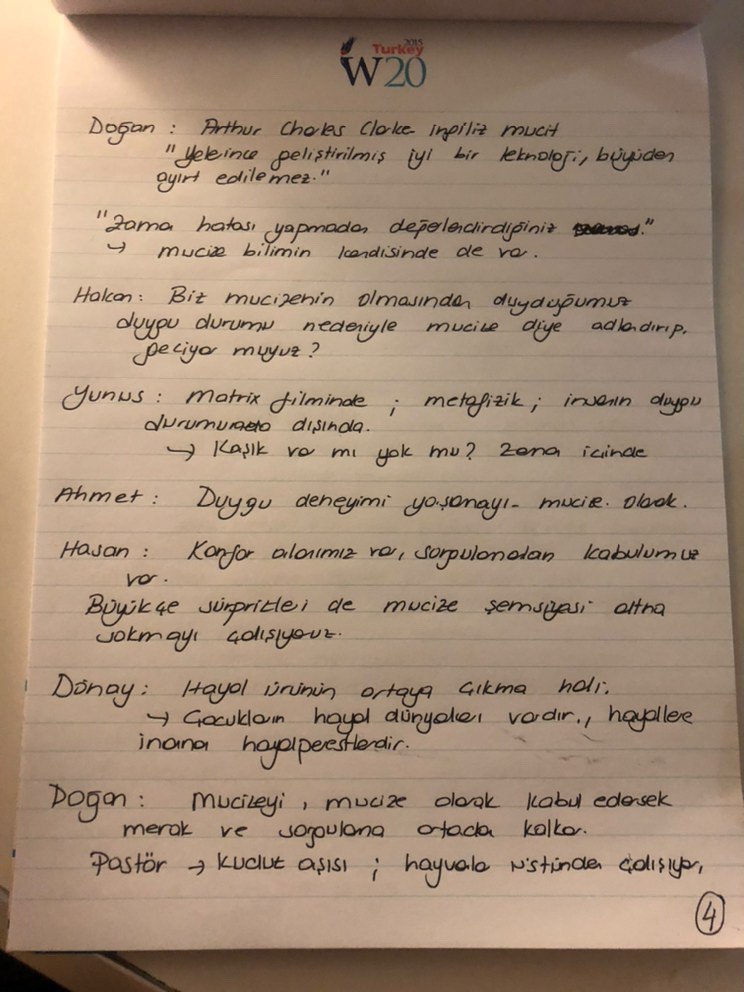 2015
Turkey
W20
Doğan : Arthur Charles Clarke ingiliz mucit
"Yeterince geliştirilmiş iyi bir teknoloji, büyüden
ayırt edilemez."
"Zama hatası yapmadan değerlendirdiğiniz."
→ mucize bilimin kendisinde de var.
Hakan : Biz mucizenin olmasından duyduğumuz
duygu durumu nedeniyle mucize diye adlandırıp,
geçiyor muyuz ?
Yunus : Matrix filminde ; metafizik ; insanın duygu
durumunda dışında.
→ Kaşık var mı yok mu? Zaman içinde
Ahmet : Duygu deneyimi yaşanayı- mucize. olarak.
Hasan : Konfor alanımız var, sorgulamadan kabulumuz
var.
Büyükçe sürprizleri de mucize şemsiyesi altına
sokmayı çalışıyoruz.
Dönay : Hayal ürünün ortaya çıkma hali.
→ Çocukların hayal dünyaları vardır., hayallere
inanan hayalperestlerdir.
Doğan : Mucizeyi, mucize olarak kabul edersek
merak ve sorgulama ortada kalkar.
Pastör → Kuduz aşısı ; hayvala üstünden çalışıyor,
4